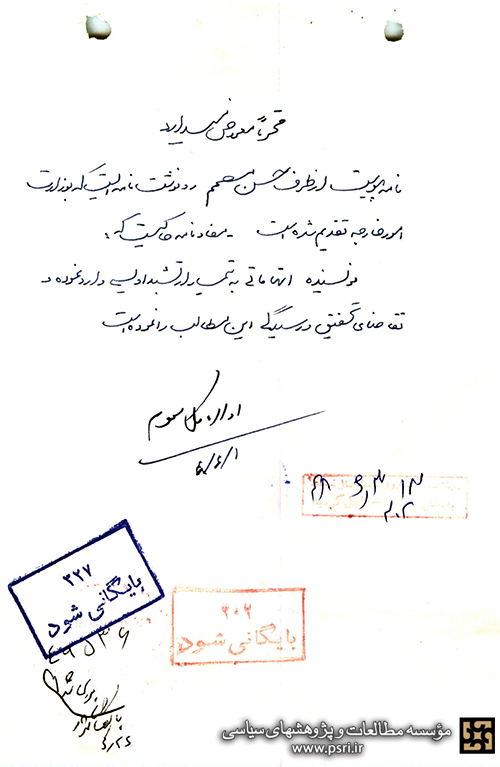 محترماً معروض میدارد
نامه پیوست از طرف حسن مصمم رونوشت نامه ایست که بوزارت
امور خارجه تقدیم شده است - مفاد نامه حاکیست که :
نویسنده اتهاماتی به تیمسار ارتشبد اویسی وارد نموده و
تقاضای تحقیق و رسیدگی این مطالب را نموده است
اداره کل سوم
۳۲۷
بایگانی شود
۳۰۲
بایگانی شود
بایگانی
۶/۲۶
مؤسسه مطالعات و پژوهشهای سیاسی
www.psri.ir